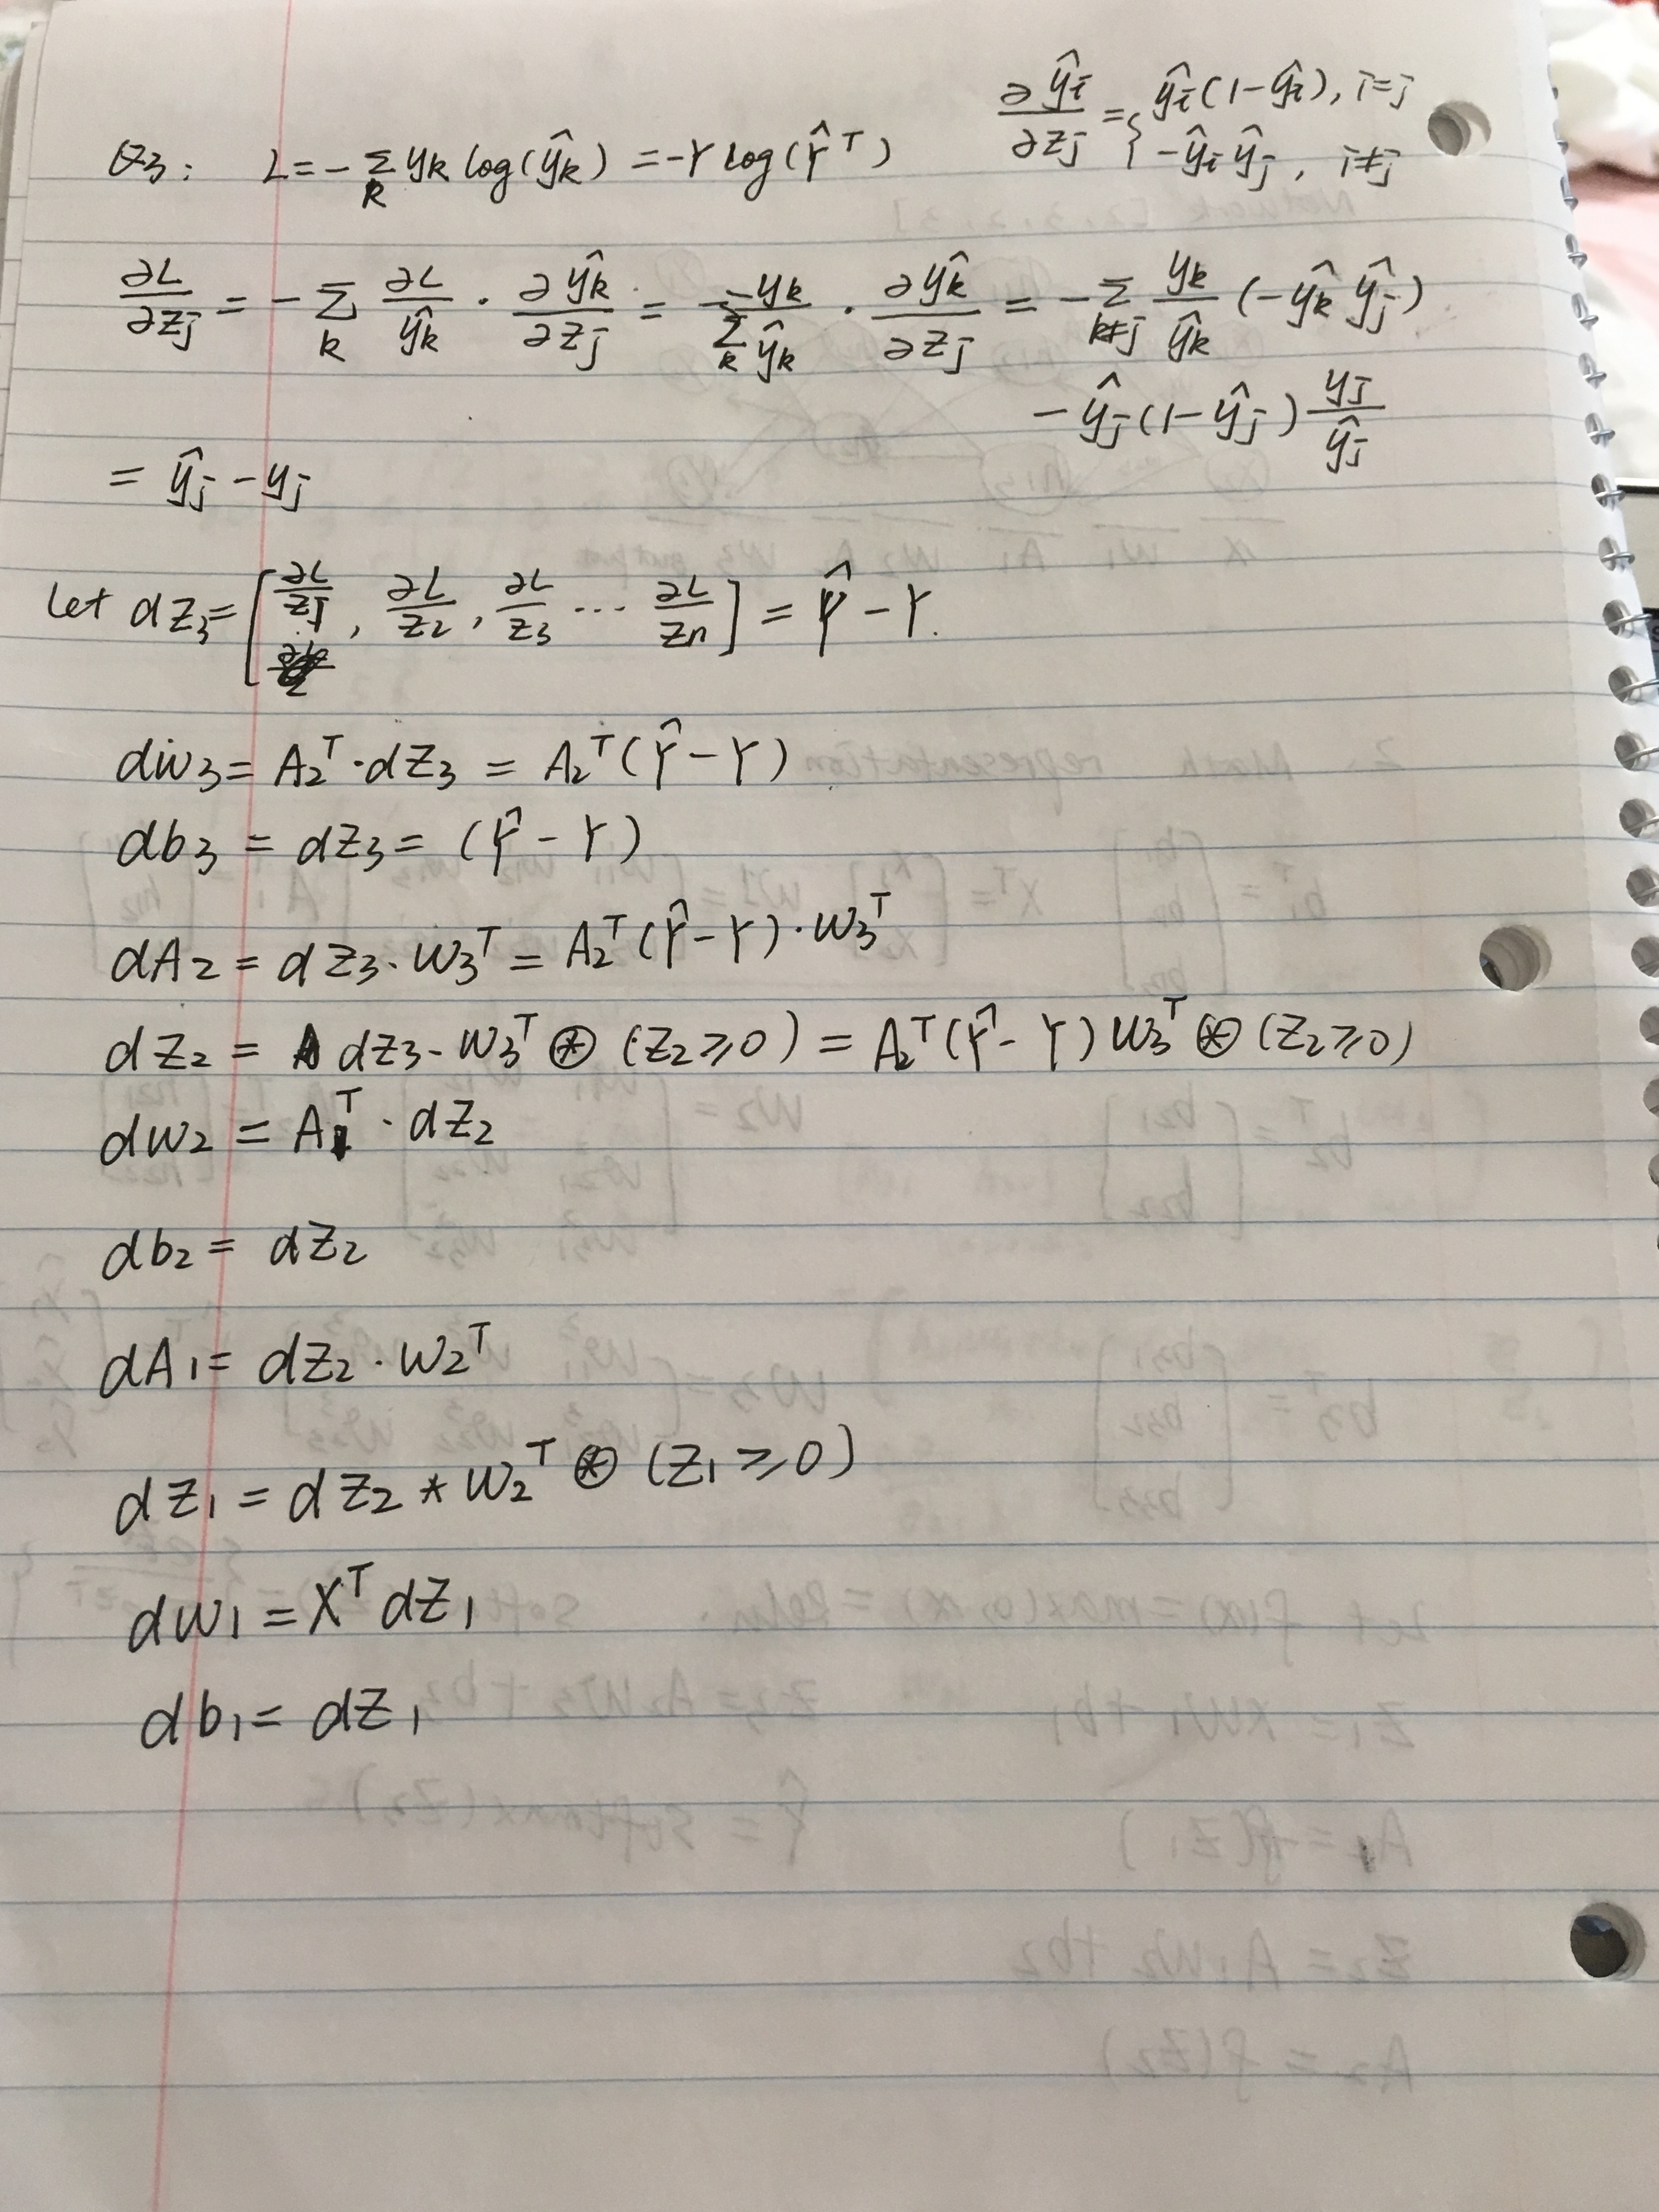 Q3: L = -Σ_k y_k log(ŷ_k) = -Y log(Ŷ^T) ∂ŷ_i/∂z_j = { ŷ_i(1-ŷ_i), i=j
-ŷ_i ŷ_j, i≠j
∂L/∂z_j = -Σ_k ∂L/ŷ_k · ∂ŷ_k/∂z_j = Σ_k -y_k/ŷ_k · ∂ŷ_k/∂z_j = -Σ_{k≠j} y_k/ŷ_k (-ŷ_k ŷ_j)
-ŷ_j(1-ŷ_j) y_j/ŷ_j
= ŷ_j - y_j
Let dZ3 = [∂L/z_1, ∂L/z_2, ∂L/z_3 ... ∂L/z_n] = Ŷ - Y.
dW3 = A2^T · dZ3 = A2^T(Ŷ - Y)
db3 = dZ3 = (Ŷ - Y)
dA2 = dZ3 · W3^T = A2^T(Ŷ - Y) · W3^T
dZ2 = dZ3 · W3^T ⊛ (Z2 ≥ 0) = A2^T(Ŷ - Y) W3^T ⊛ (Z2 ≥ 0)
dW2 = A1^T · dZ2
db2 = dZ2
dA1 = dZ2 · W2^T
dZ1 = dZ2 * W2^T ⊛ (Z1 ≥ 0)
dW1 = X^T dZ1
db1 = dZ1